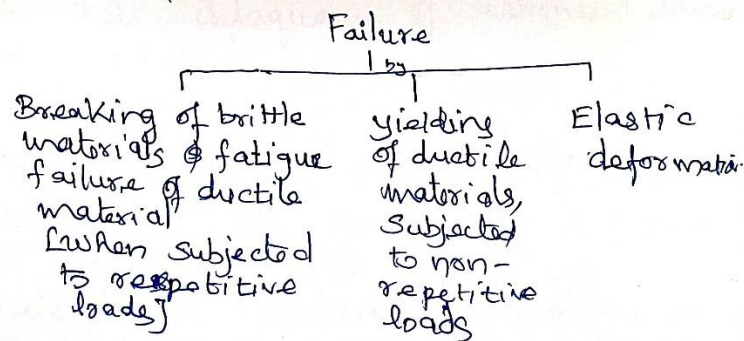 Failure
by
Breaking of brittle
materials & fatigue
failure of ductile
material
[when subjected
to repetitive
loads]
yielding
of ductile
materials,
Subjected
to non-
repetitive
loads
Elastic
deformation